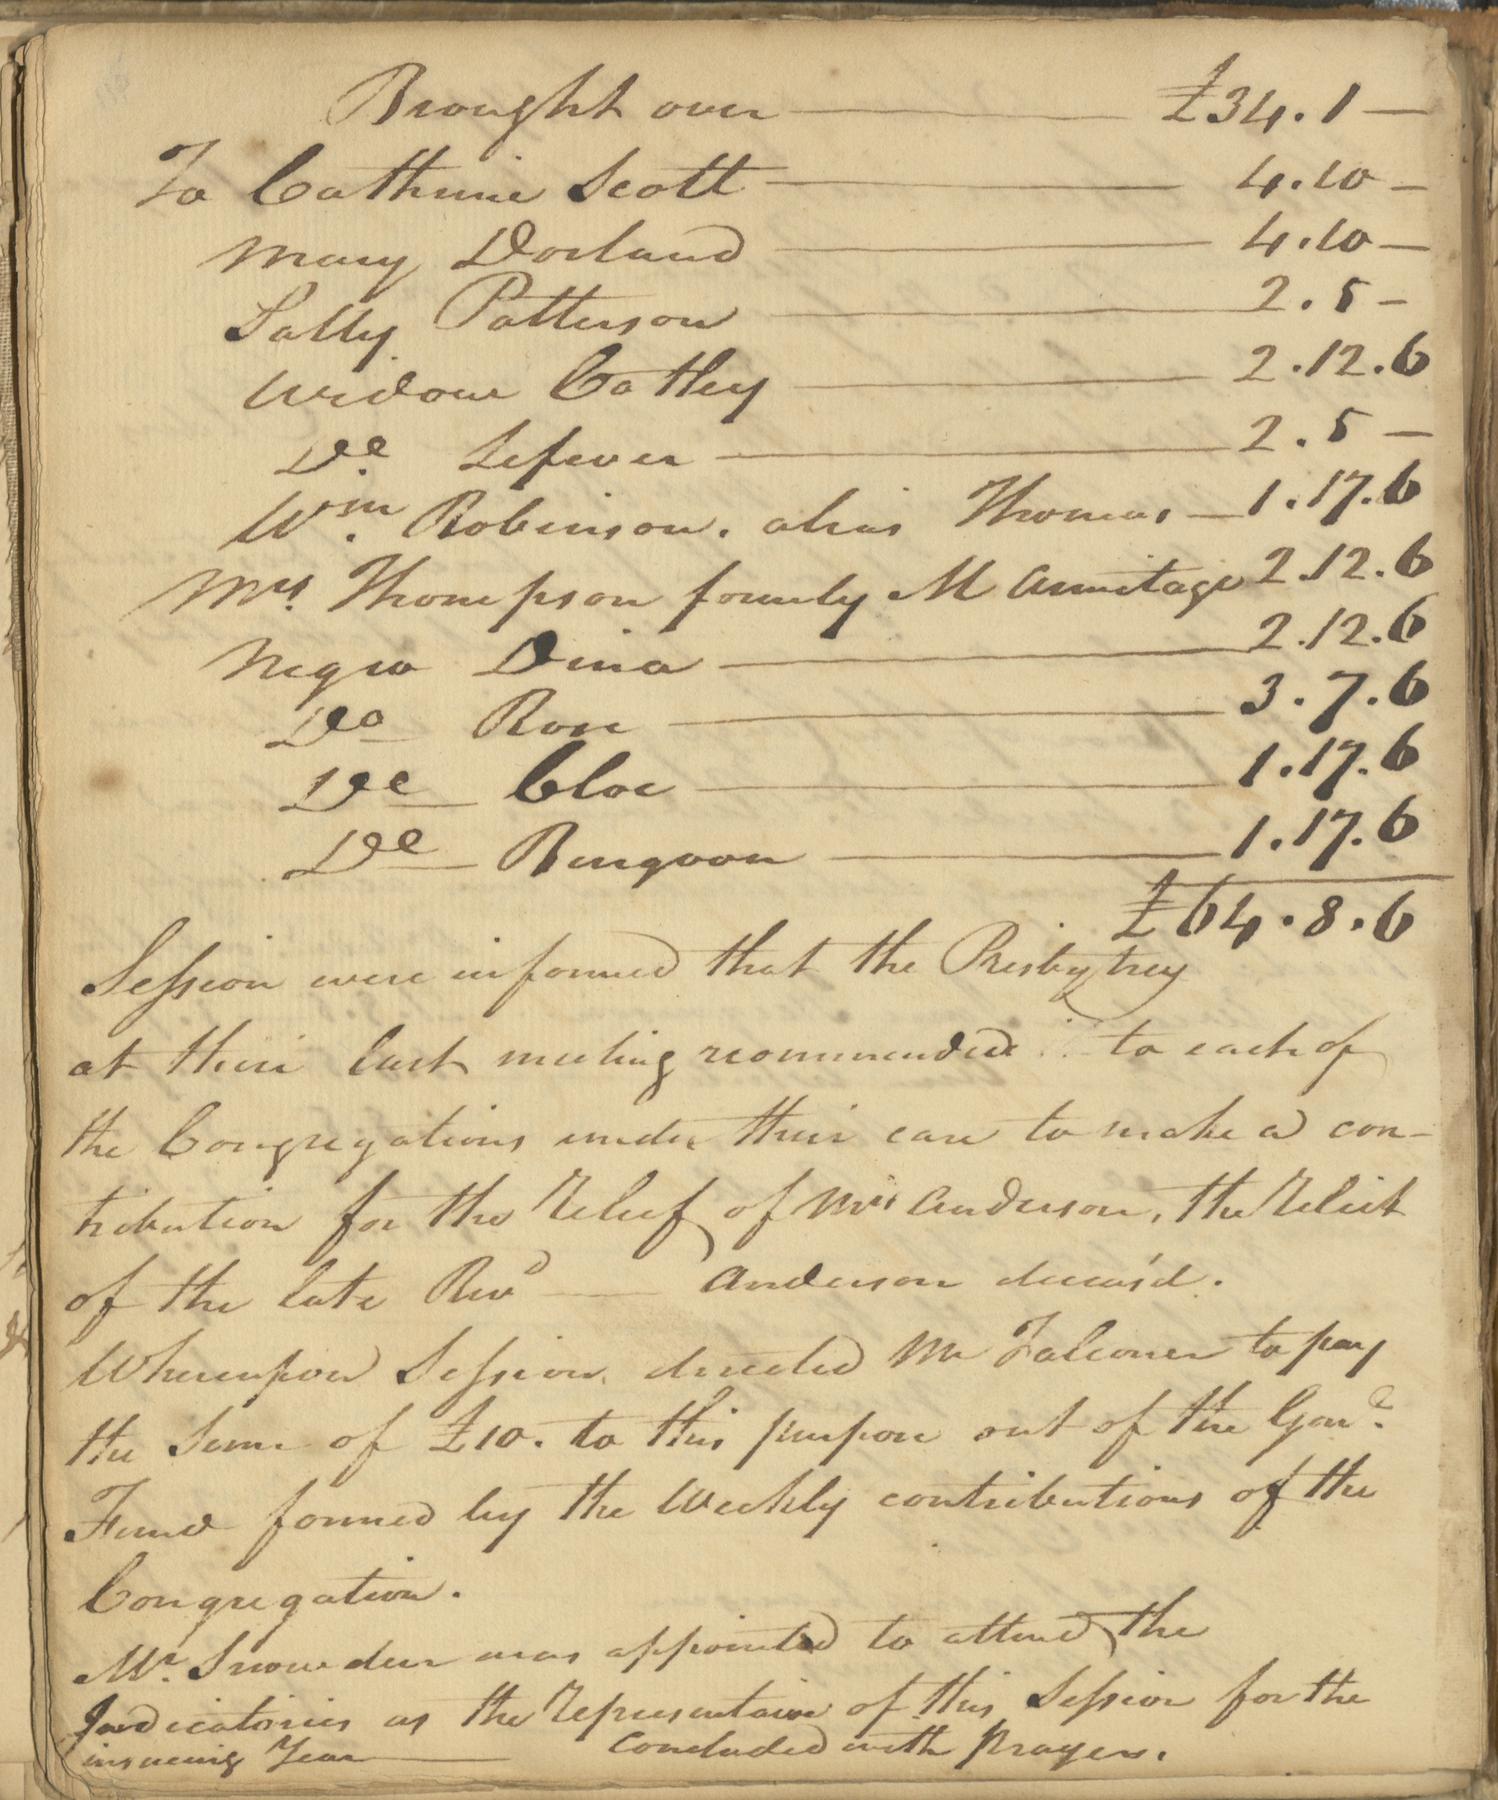 Brought over — £34.1—
To Cathrine Scott — 4.10—
Mary Dorland — 4.10—
Sally Patterson — 2.5—
Widow Catley — 2.12.6
Do. Lefever — 2.5—
Wm. Robinson. alias Thomas — 1.17.6
Mrs. Thompson formly M Armitage 2.12.6
Negro Dina — 2.12.6
Do Rose — 3.7.6
Do Cloe — 1.17.6
Do Bengoon — 1.17.6
£64.8.6
Session were informed that the Presbytrey
at their last meeting recommended to each of
the Congregations under their care to make a con-
tribution for the relief of Mrs Anderson, the relict
of the late Revd — Anderson deceas'd.
Whereupon Session directed Mr Falconer to pay
the Sum of £10. to this purpose out of the Genl.
Fund formed by the Weekly contributions of the
Congregation.
Mr. Snowden was appointed to attend the
Judicatories as the representaive of this Session for the
insueing Year — Concluded with Prayer.